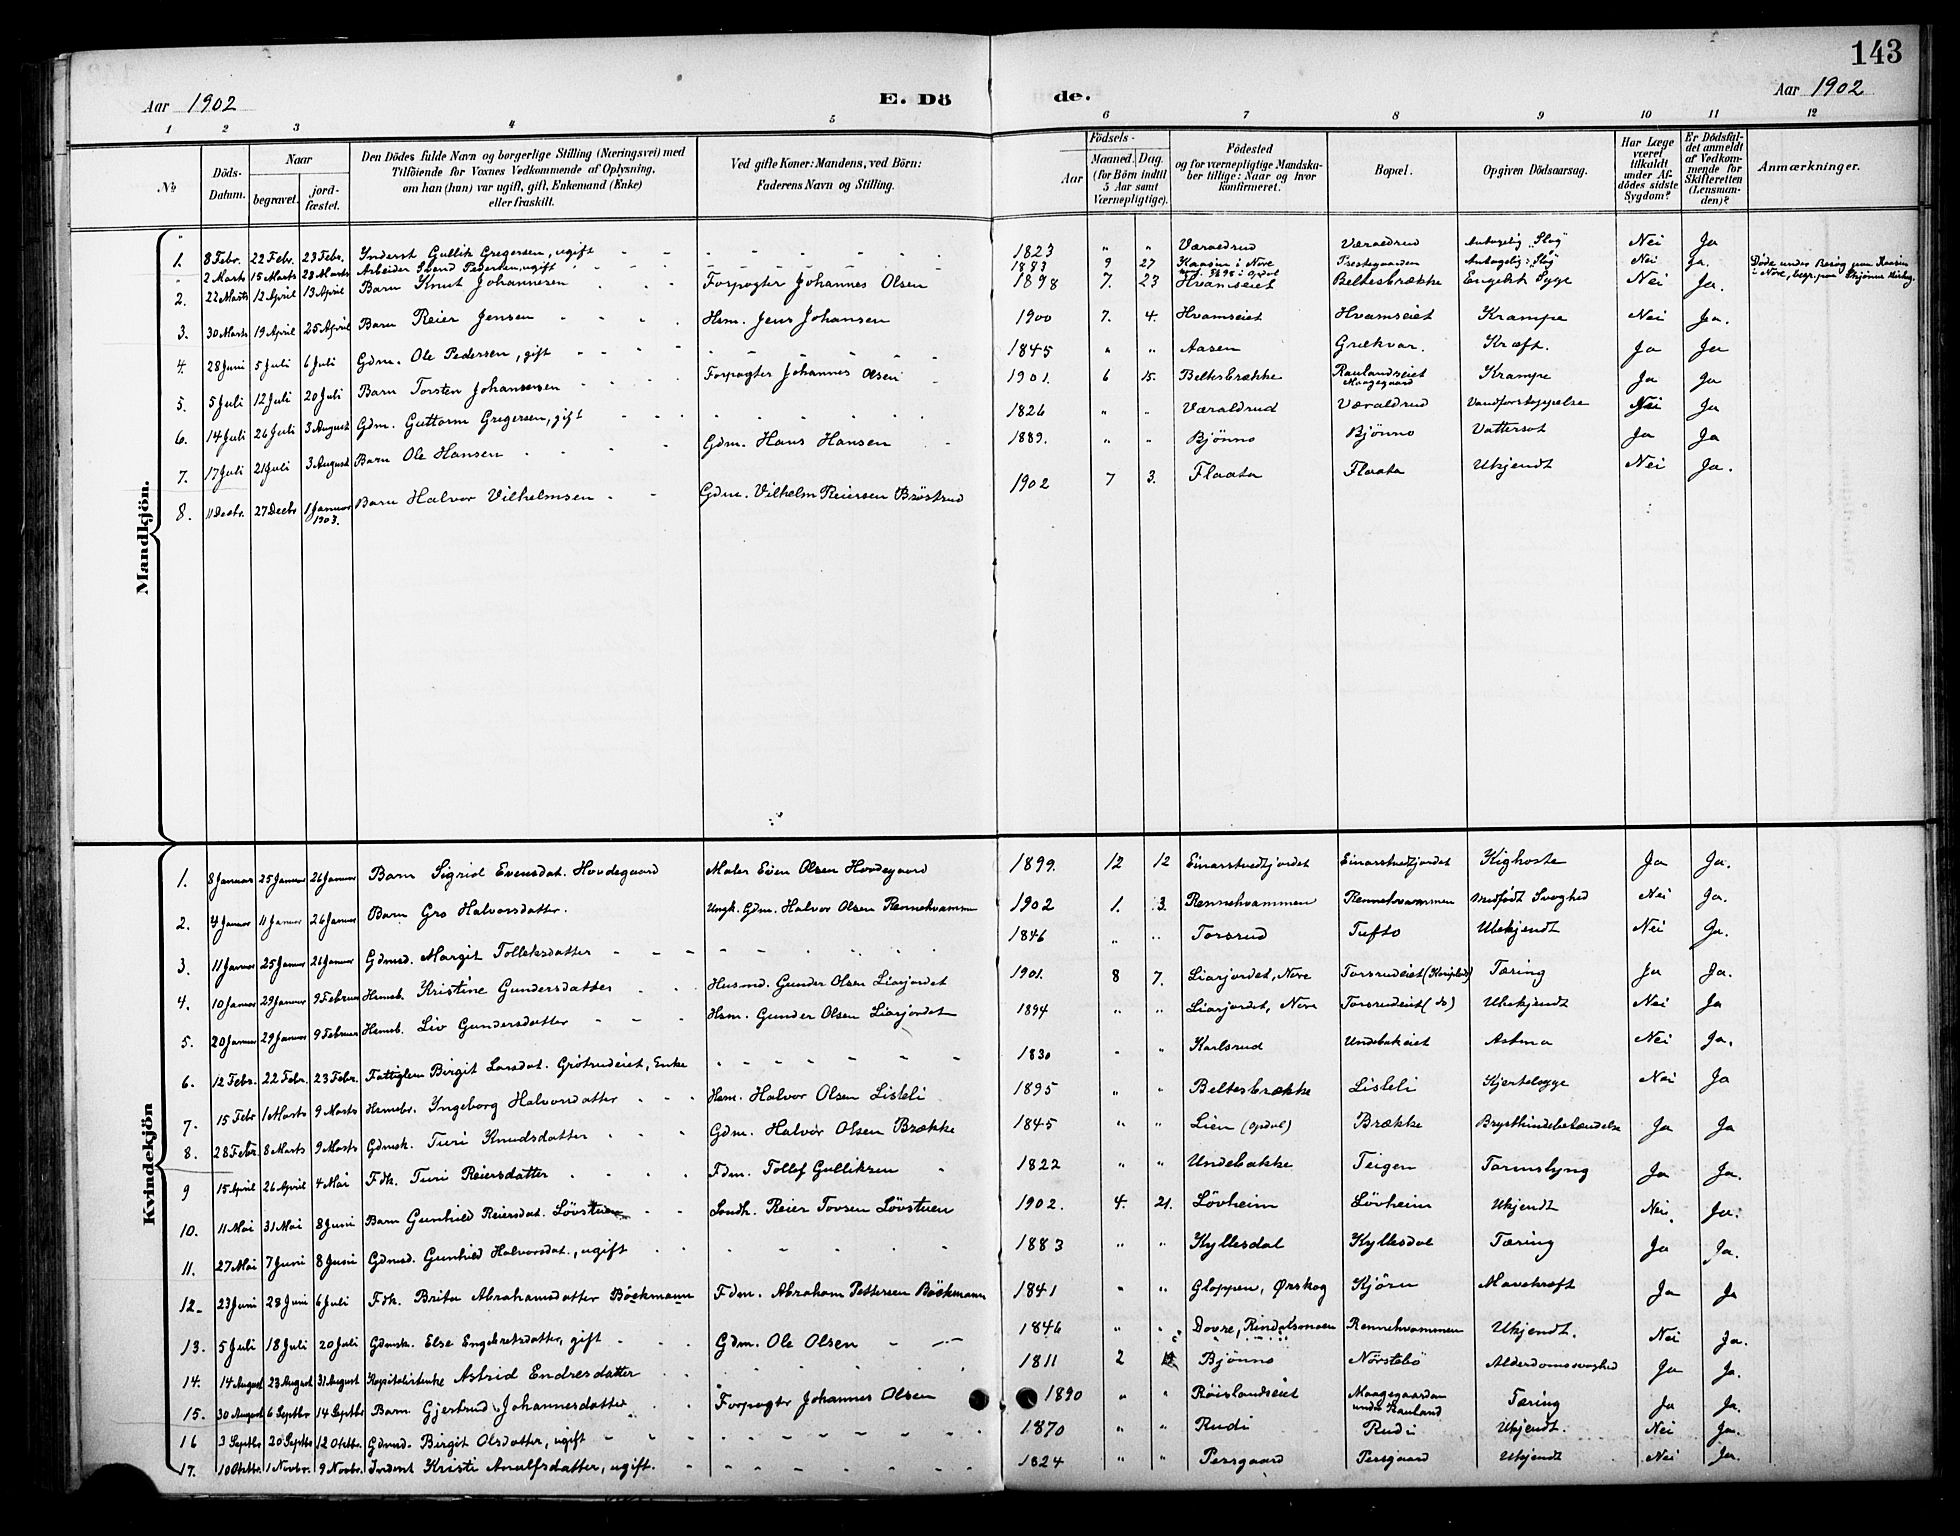 143
Aar 1902
E. Dö de.
Aar 1902
1 2 3 4 5 6 7 8 9 10 11 12
№
Döds-Datum.
Naar
begravet.
jord-fæstet.
Den Dödes fulde Navn og borgerlige Stilling (Næringsvei) med
Tilföiende for Voxnes Vedkommende af Oplysning,
om han (hun) var ugift, gift, Enkemand (Enke)
eller fraskilt.
Ved gifte Koner: Mandens, ved Börn:
Faderens Navn og Stilling.
Födsels-
Aar
Maaned. Dag.
(for Börn indtil
5 Aar samt
Værnepligtige).
Födested
og for værnepligtige Mandska-
ber tillige: Naar og hvor
konfirmeret.
Bopæl.
Opgiven Dödsaarsag.
Har Læge
været
tilkaldt
under Af-
dödes sidste
Sygdom?
Er Dödsfal-
det anmeldt
af Vedkom-
mende for
Skifteretten
(Lensman-
den)?
Anmærkninger.
Mandkjön.
1. 8 Febr. 22 Febr. 23 Febr. Inderst Gullik Gregersen, ugift - - - - - - - 1823 " " Væraldrud Væraldrud Antagelig "Slag" Nei Ja
" 2 Marts 15 Marts 23 Marts Arbeider Svend Pedersen, ugift 1883 9 27 Kaasin i Nore Prestegaarden Antagelig: "Slag" Nei Ja. Døde under Besøg paa Kaasin
i Nore, begr. paa Skjønne Kirkeg.
2. 22 Marts 12 April 13 April Barn Knut Johannesen Forpagter Johannes Olsen 1898 7. 23 Hvamseiet Beltesbrække Engelsk Syge Nei Ja.
3. 30 Marts 19 April 25 April Barn Reier Jensen Hsm. Jens Johansen 1900 7. 4. Hvamseiet Hvamseiet Krampe Nei Ja.
4. 28 Juni 5 Juli 6 Juli Gdm. Ole Pedersen, gift - - - - 1845 " " Aasen Grækvar. Kræft. Ja Ja
5. 5 Juli 12 Juli 20 Juli Barn Torsten Johannesen Forpagter Johannes Olsen 1901. 6 15. Beltesbrække Raulandseiet
Maagegaard Krampe Ja Ja
6. 14 Juli 26 Juli 3 August Gdm. Guttorm Gregersen, gift - - - 1826 " " Væraldrud Væraldrud Vandforstoppelse Nei Ja
7. 17 Juli 21 Juli 3 August Barn Ole Hansen Gdm. Hans Hansen 1889. " " Bjønno Bjønno Vattersot Ja Ja
8. 11 Decbr. 27 Decbr 1 Januar
1903. Barn Halvor Vilhelmsen Gdm. Vilhelm Reiersen Brøstrud 1902 7 3. Flaata Flaata Ukjendt Nei Ja.
Kvindekjön
1. 8 Januar 25 Januar 26 Januar Barn Sigrid Evensdat. Hovdegaard Maler Even Olsen Hovdegaard 1899. 12 12 Einarstvedtjordet Einarstvedtjordet Kighoste Ja Ja.
2. 4 Januar 11 Januar 26 Januar Barn Gro Halvorsdatter. Ungk. Gdm. Halvor Olsen Rennehvammen 1902 1. 3. Rennehvammen Rennehvammen Medfødt Svaghed Nei Ja.
3. 11 Januar 25 Januar 26 Januar Gdmd. Margit Tolleksdatter - - - 1846 " " Torsrud Tufto Ubekjendt Nei Ja.
4. 10 Januar 29 Januar 9 Februar Hsmsb. Kristine Gundersdatter Husmd. Gunder Olsen Liajordet 1901. 8 7. Liarjordet, Nore Torsrudeiet (Kongsbrg) Tæring Ja Ja.
5. 20 Januar 29 Januar 9 Februar Hsmsb. Liv Gundersdatter Hsm. Gunder Olsen Liarjordet 1894 " " Liarjordet, Nore Torsrudeiet (do) Ubekjendt Nei Ja
6. 12 Febr. 22 Febr. 23 Febr. Fattiglem Birgit Larsdat. Grøtrudeiet, Enke - - - 1830 " " Karlsrud Undebakeiet Astma Nei Ja.
7. 15 Febr 1 Marts 9 Marts Hsmsbr. Ingeborg Halvorsdatter Hsm. Halvor Olsen Lisleli 1895 " " Beltesbrække Lisleli Kjertelsyge Nei Ja
8. 28 Febr. 8 Marts 9 Marts Gdmsk. Turi Knudsdatter Gdm. Halvor Olsen Brække 1845 " " Lien (Opdal) Brække Brysthindebetændelse Ja Ja
9 15 April 26 April 4 Mai Fdk. Turi Reiersdatter Fdm. Tollef Gulliksen 1822 " " Undebakke Teigen Tarmslyng Ja Ja.
10. 11 Mai 31 Mai 8 Juni Barn Gunhild Reiersdat. Løvstuen Landh. Reier Torsen Løvstuen 1902. 4. 21. Løvheim Løvheim Ukjendt Nei. Ja.
11. 27 Mai 7 Juni 8 Juni Gdmsd. Gunhild Halvorsdat., ugift 1883 " " Kyllesdal Kyllesdal Tæring Ja Ja.
12. 23 Juni 28 Juni 6 Juli Fdk. Brita Abrahamsdatter Böckmann Fdm. Abraham Pettersen Böckmann 1841 " " Gloppen, Ørskog Kjörn Mavekræft Ja Ja
13. 5 Juli 18 Juli 20 Juli Gdmsk. Else Engebretsdatter, gift Gdm. Ole Olsen - - 1846 " " Dovre, Rindalsmoen Rennehvammen Ukjendt. Nei Ja.
14. 14 August 23 August 31 August Kapitalistenke Astrid Endresdatter 1811 2 Bjønno Nørstebö Alderdomssvaghed Ja Ja.
15. 30 August 6 Septbr 14 Septbr Barn Gjertrud Johannesdatter Forpagter Johannes Olsen 1890 " " Røislandseiet Maagegaarden
under Rauland Tæring Ja Ja.
16 3 Septbr 20 Septbr 12 Oktbr. Gdmsd. Birgit Olsdatter, ugift - - - - - - 1870 " " Rudi Rudi Ukjendt. Nei Ja.
17. 10 Oktbr. 1 Novbr. 9 Novbr. Inderst Kristi Analfsdatter, ugift. - - - - 1824 " " Persgaard Persgaard Ukjendt Nei Ja.